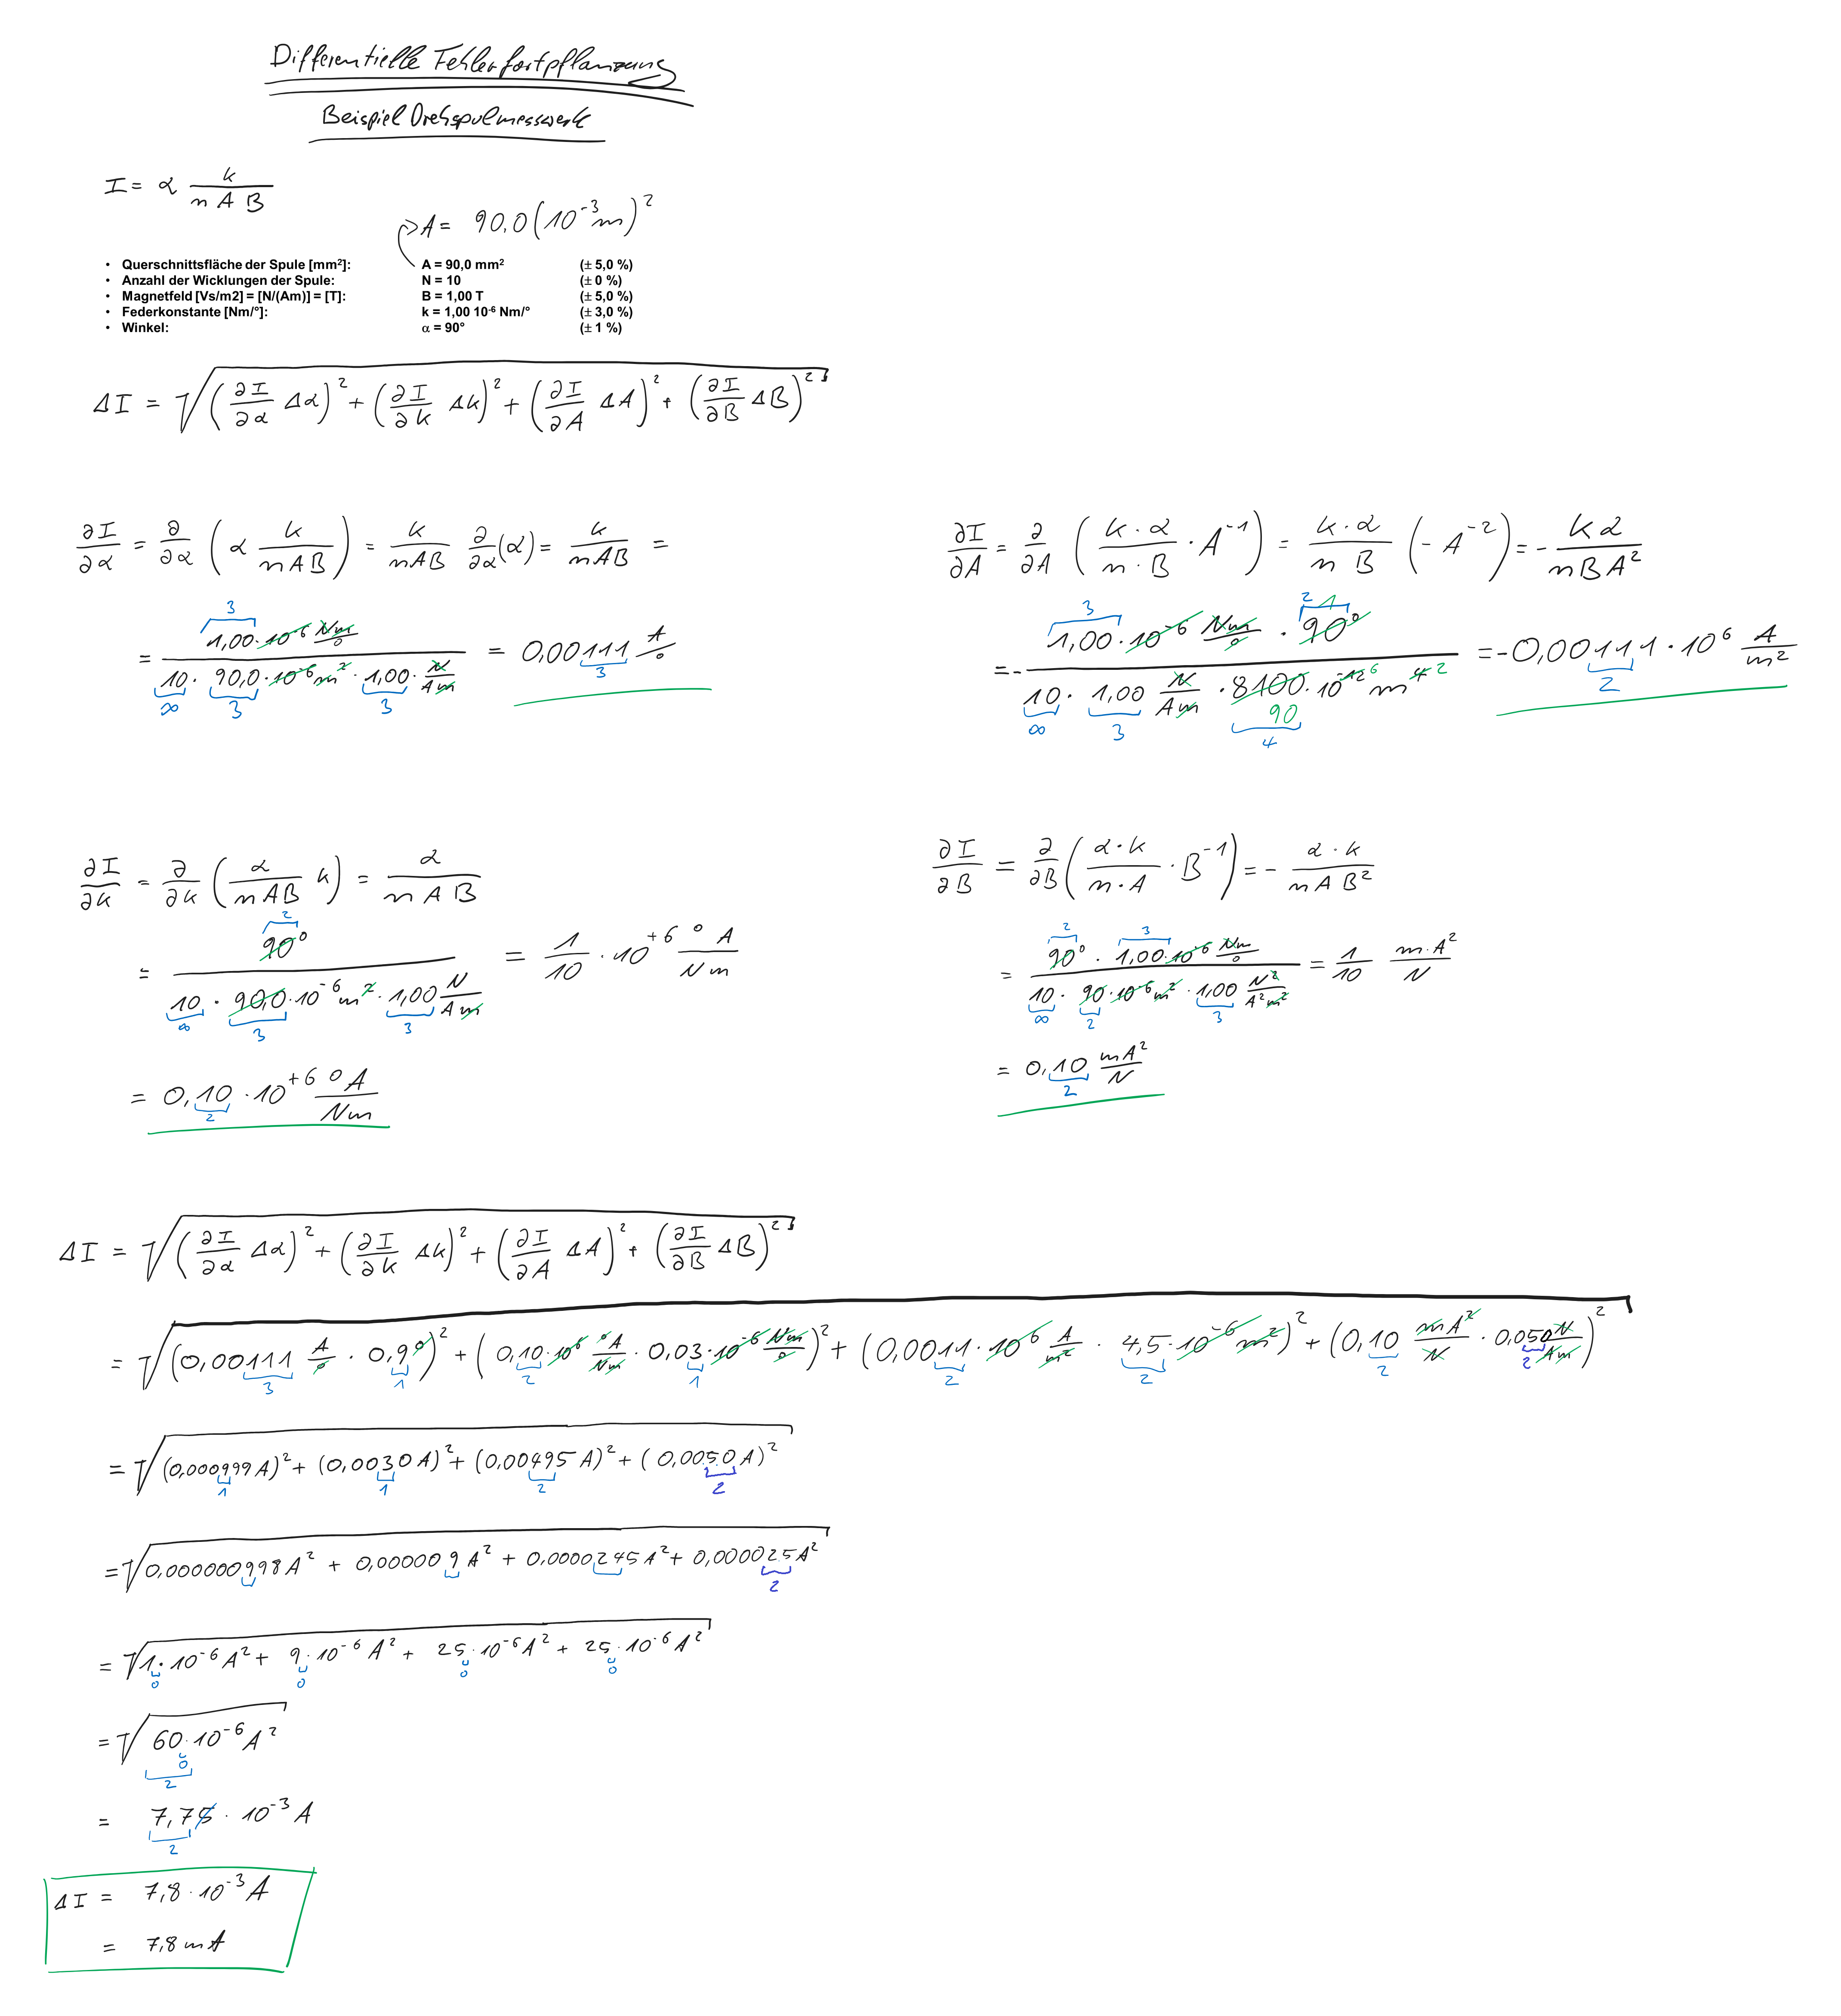 Differentielle Fehlerfortpflanzung
Beispiel Drehspulmesswerk
I = α k / (n A B)
A = 90,0 (10⁻³ m)²
• Querschnittsfläche der Spule [mm²]: A = 90,0 mm² (± 5,0 %)
• Anzahl der Wicklungen der Spule: N = 10 (± 0 %)
• Magnetfeld [Vs/m2] = [N/(Am)] = [T]: B = 1,00 T (± 5,0 %)
• Federkonstante [Nm/°]: k = 1,00 10⁻⁶ Nm/° (± 3,0 %)
• Winkel: α = 90° (± 1 %)
ΔI = √( (∂I/∂α Δα)² + (∂I/∂k Δk)² + (∂I/∂A ΔA)² + (∂I/∂B ΔB)² )
∂I/∂α = ∂/∂α (α k/(nAB)) = k/(nAB) ∂/∂α (α) = k/(nAB) =
3
= 1,00·10⁻⁶ Nm/° / (10 · 90,0·10⁻⁶ m² · 1,00 · N/(Am)) = 0,00111 A/°
∞ 3 3 3
∂I/∂A = ∂/∂A (k·α/(n·B) · A⁻¹) = k·α/(n B) (−A⁻²) = − kα/(nBA²)
3 2 1
= − 1,00·10⁻⁶ Nm/° · 90° / (10 · 1,00 N/(Am) · 8100·10⁻¹² ⁶ m⁴ ²) = −0,00111·10⁶ A/m²
90
∞ 3 4 2
∂I/∂k = ∂/∂k (α/(nAB) k) = α/(nAB)
2
= 90° / (10 · 90,0·10⁻⁶ m² · 1,00 N/(Am)) = 1/10 · 10⁺⁶ ° A/(Nm)
∞ 3 3
= 0,10 · 10⁺⁶ °A/(Nm)
2
∂I/∂B = ∂/∂B (α·k/(n·A) · B⁻¹) = − α·k/(nAB²)
2 3
= 90° · 1,00·10⁻⁶ Nm/° / (10 · 90·10⁻⁶ m² · 1,00 N²/(A²m²)) = 1/10 m·A²/N
∞ 2 3
= 0,10 mA²/N
2
ΔI = √( (∂I/∂α Δα)² + (∂I/∂k Δk)² + (∂I/∂A ΔA)² + (∂I/∂B ΔB)² )
= √( (0,00111 A/° · 0,9°)² + (0,10·10⁶ °A/(Nm) · 0,03·10⁻⁶ Nm/°)² + (0,0011·10⁶ A/m² · 4,5·10⁻⁶ m²)² + (0,10 mA²/N · 0,050 N/(Am))² )
3 1 2 1 2 2 2 2
= √( (0,000999 A)² + (0,0030 A)² + (0,00495 A)² + (0,0050 A)² )
1 1 2 2
= √( 0,000000998 A² + 0,000009 A² + 0,0000245 A² + 0,000025 A² )
2
= √( 1·10⁻⁶ A² + 9·10⁻⁶ A² + 25·10⁻⁶ A² + 25·10⁻⁶ A² )
0 0 0 0
= √( 60·10⁻⁶ A² )
0
2
= 7,75 · 10⁻³ A
2
ΔI = 7,8·10⁻³ A
= 7,8 mA